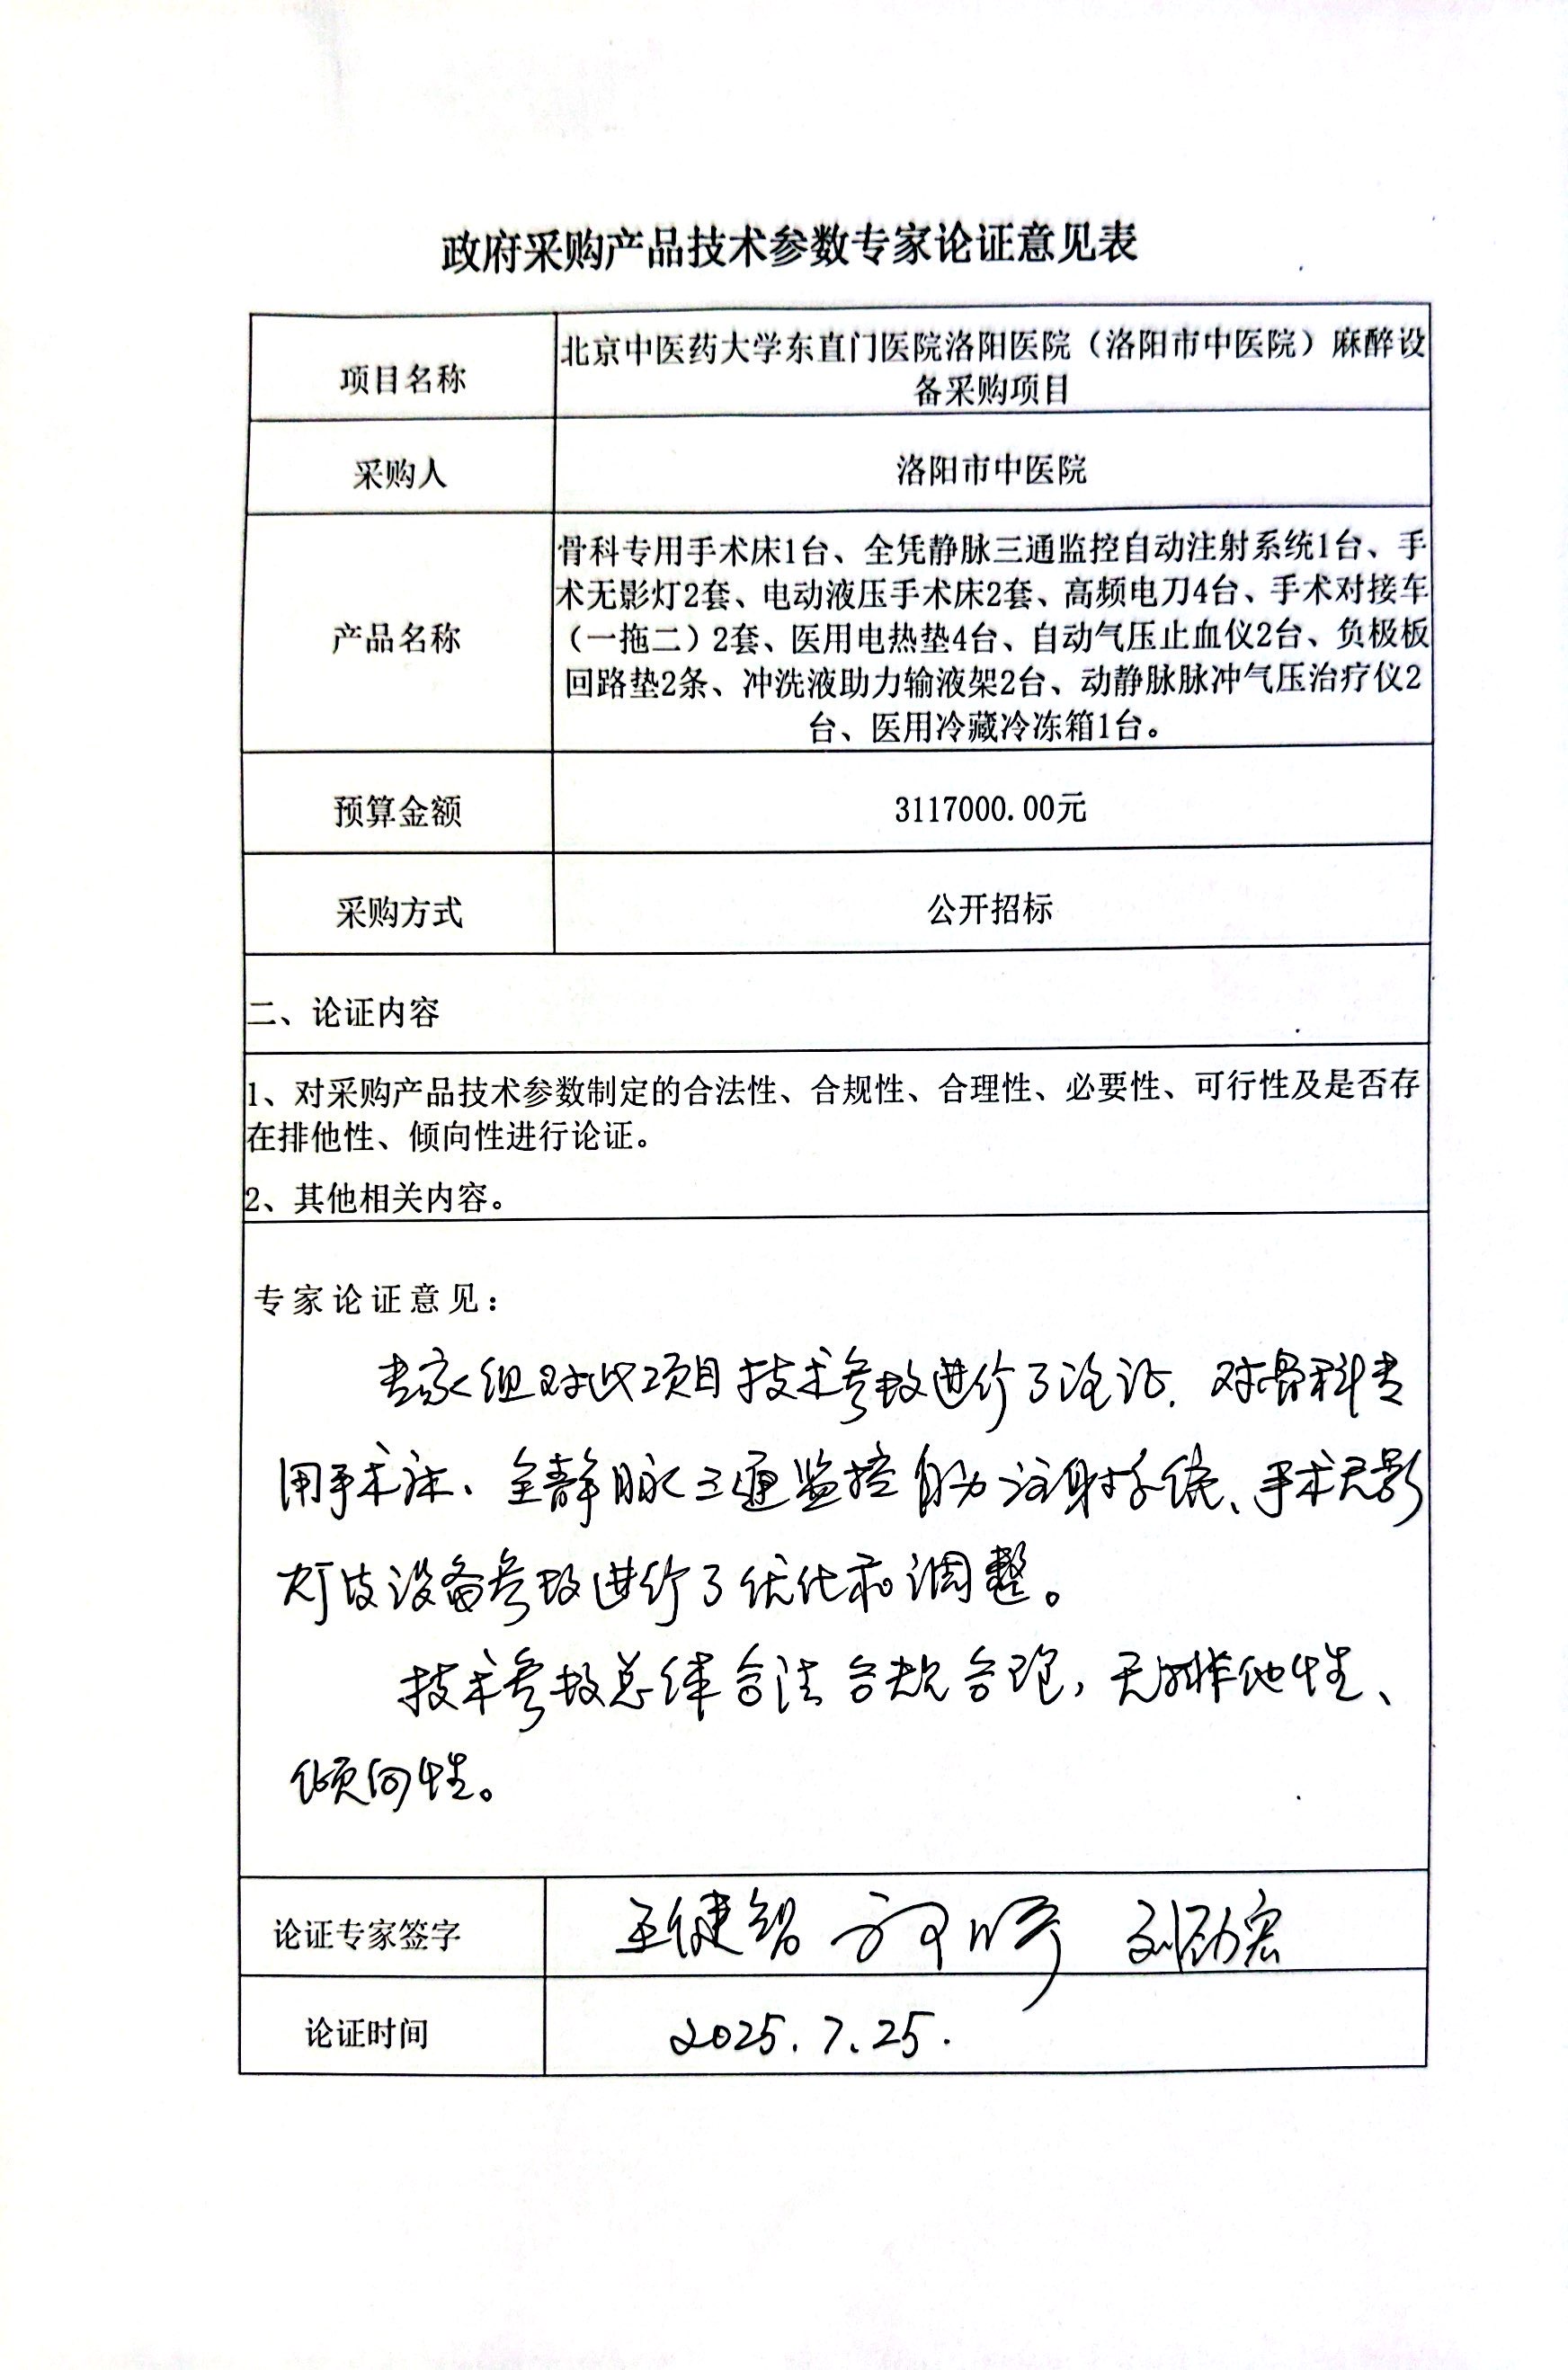 政府采购产品技术参数专家论证意见表
项目名称
北京中医药大学东直门医院洛阳医院（洛阳市中医院）麻醉设
备采购项目
采购人
洛阳市中医院
产品名称
骨科专用手术床1台、全凭静脉三通监控自动注射系统1台、手
术无影灯2套、电动液压手术床2套、高频电刀4台、手术对接车
（一拖二）2套、医用电热垫4台、自动气压止血仪2台、负极板
回路垫2条、冲洗液助力输液架2台、动静脉脉冲气压治疗仪2
台、医用冷藏冷冻箱1台。
预算金额
3117000.00元
采购方式
公开招标
二、论证内容
1、对采购产品技术参数制定的合法性、合规性、合理性、必要性、可行性及是否存
在排他性、倾向性进行论证。
2、其他相关内容。
专家论证意见：
专家组对此项目技术参数进行了论证，对骨科专
用手术床、全静脉三通监控自动注射系统、手术无影
灯设备参数进行了优化和调整。
技术参数总体合法合规合理，无排他性、
倾向性。
论证专家签字
王健智 刘劲宏
论证时间
2025.7.25.